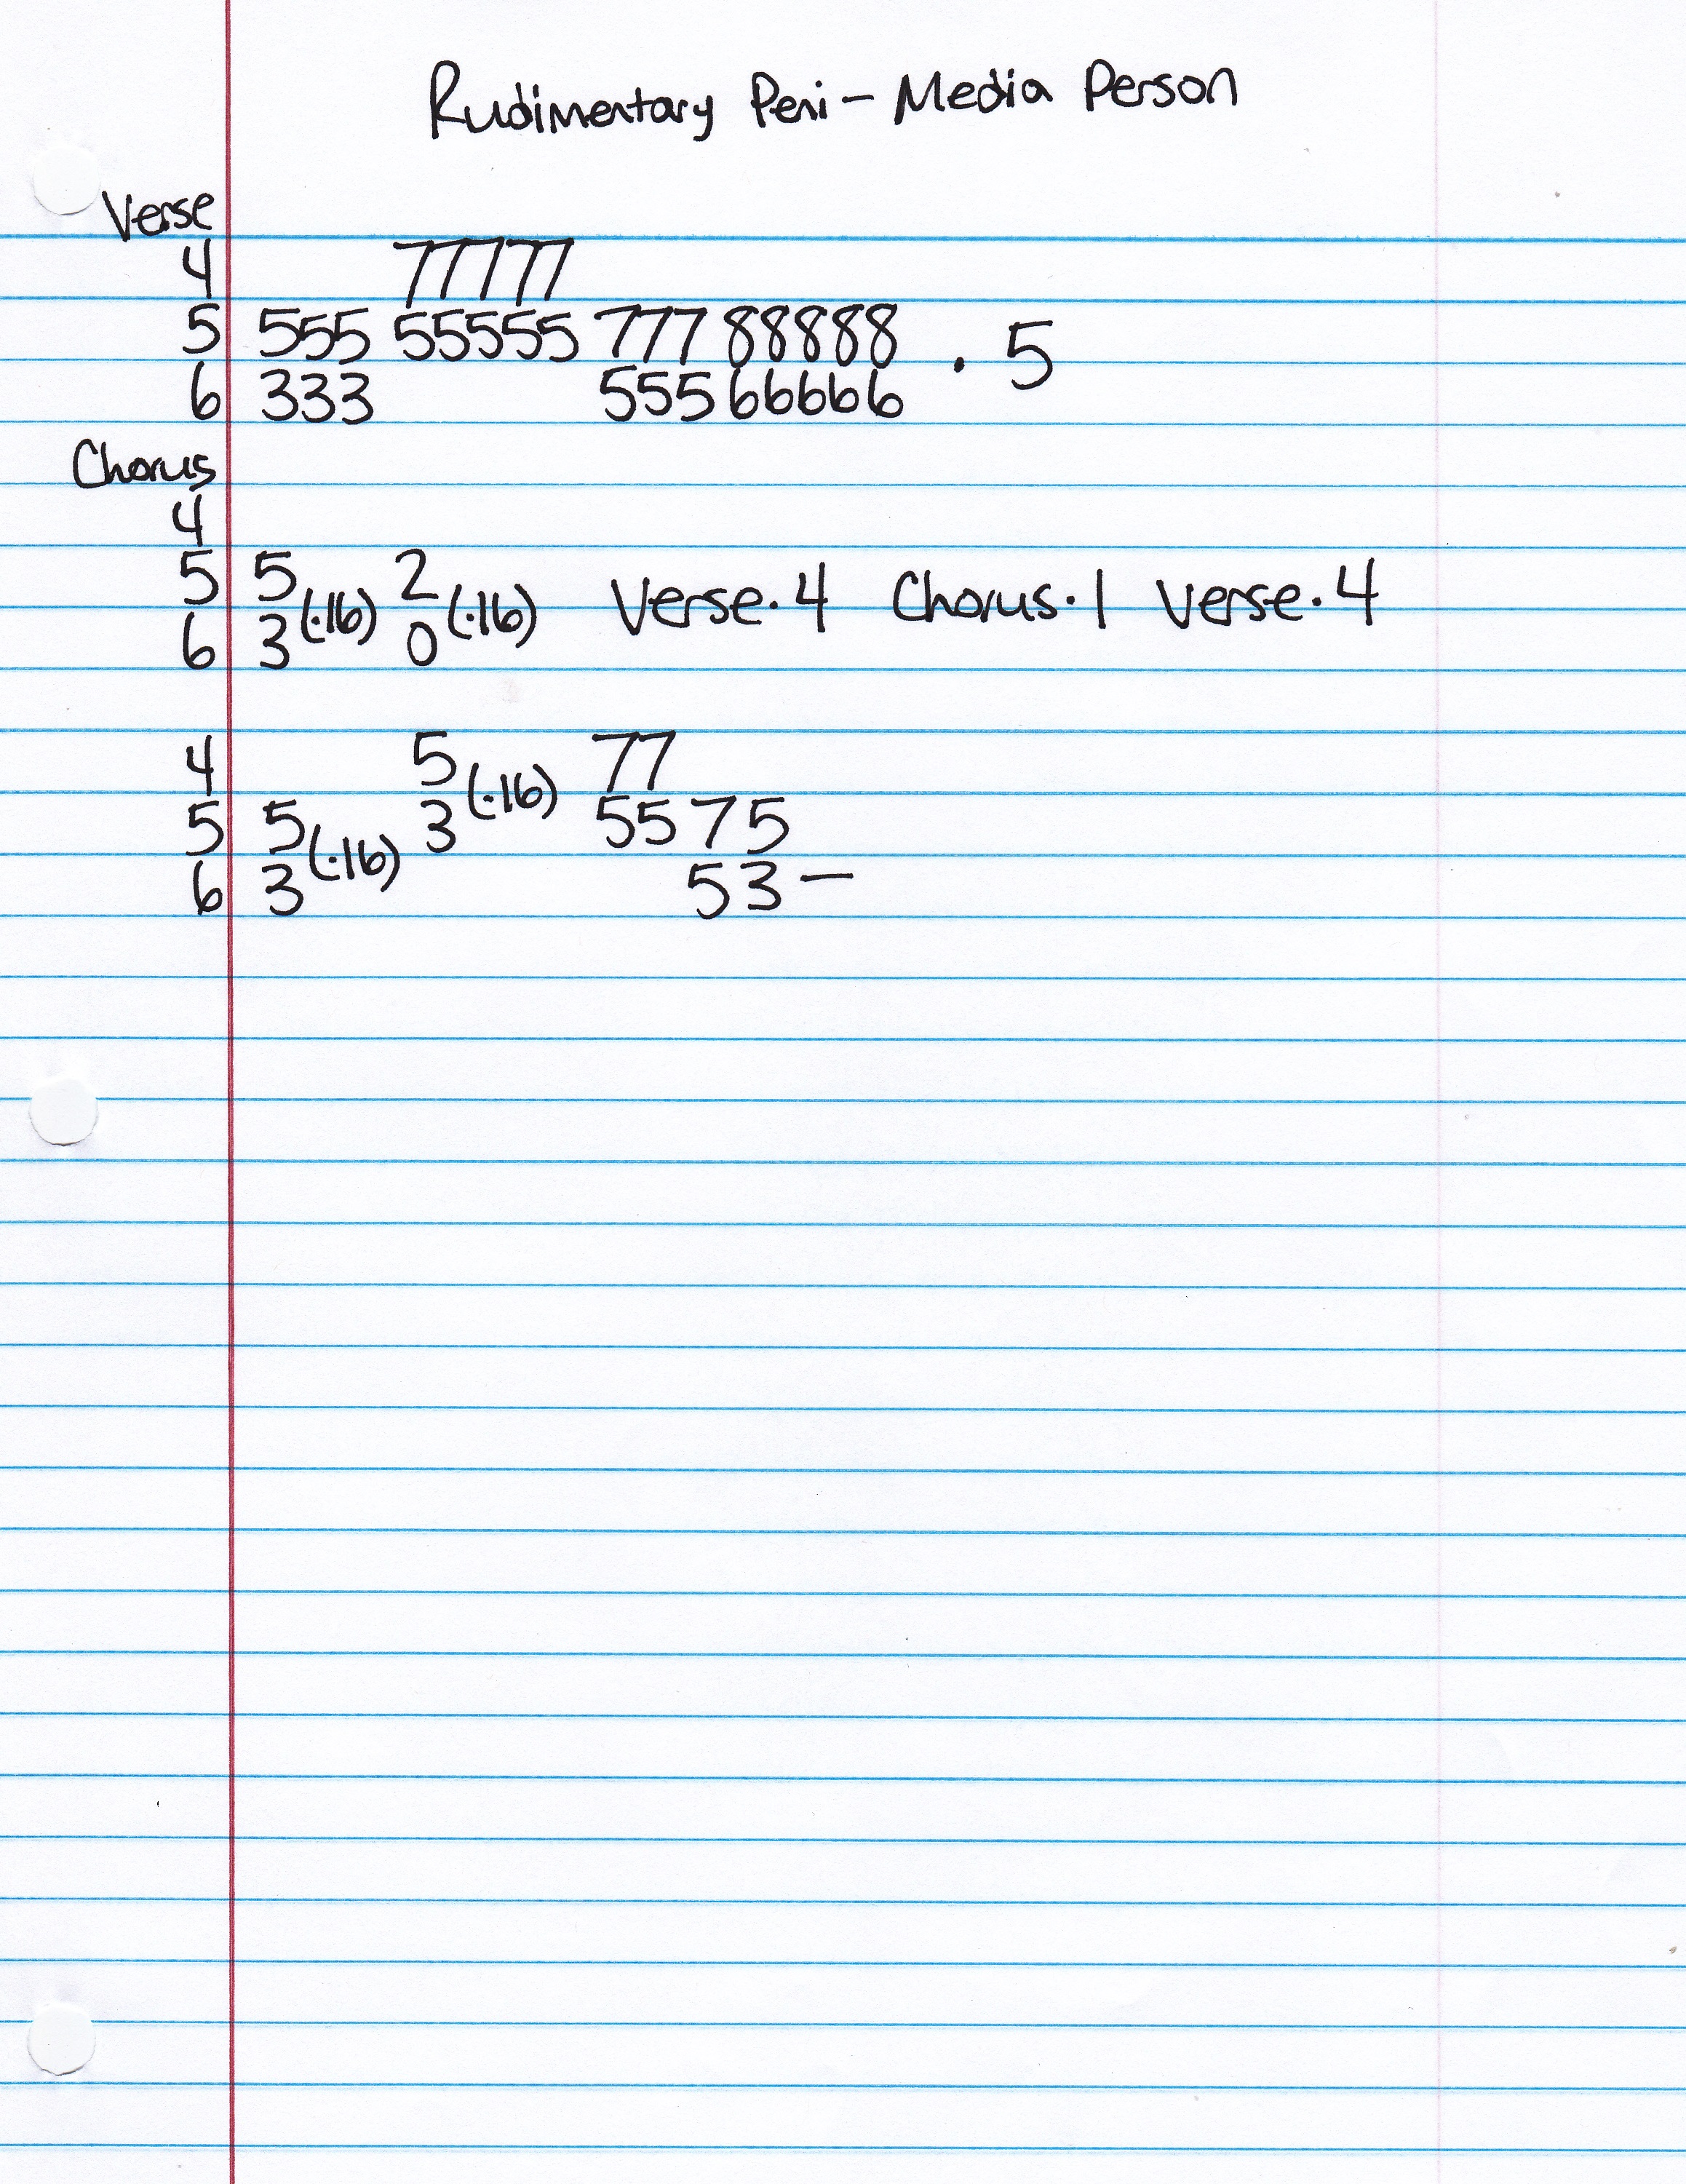 Rudimentary Peni - Media Person
Verse
4 77777
5 555 55555 777 88888 · 5
6 333 555 66666
Chorus
4
5 5 (·16) 2 (·16) Verse·4 Chorus·1 Verse·4
6 3 0
4 5 (·16) 77
5 5 (·16) 3 55 7 5
6 3 5 3 —